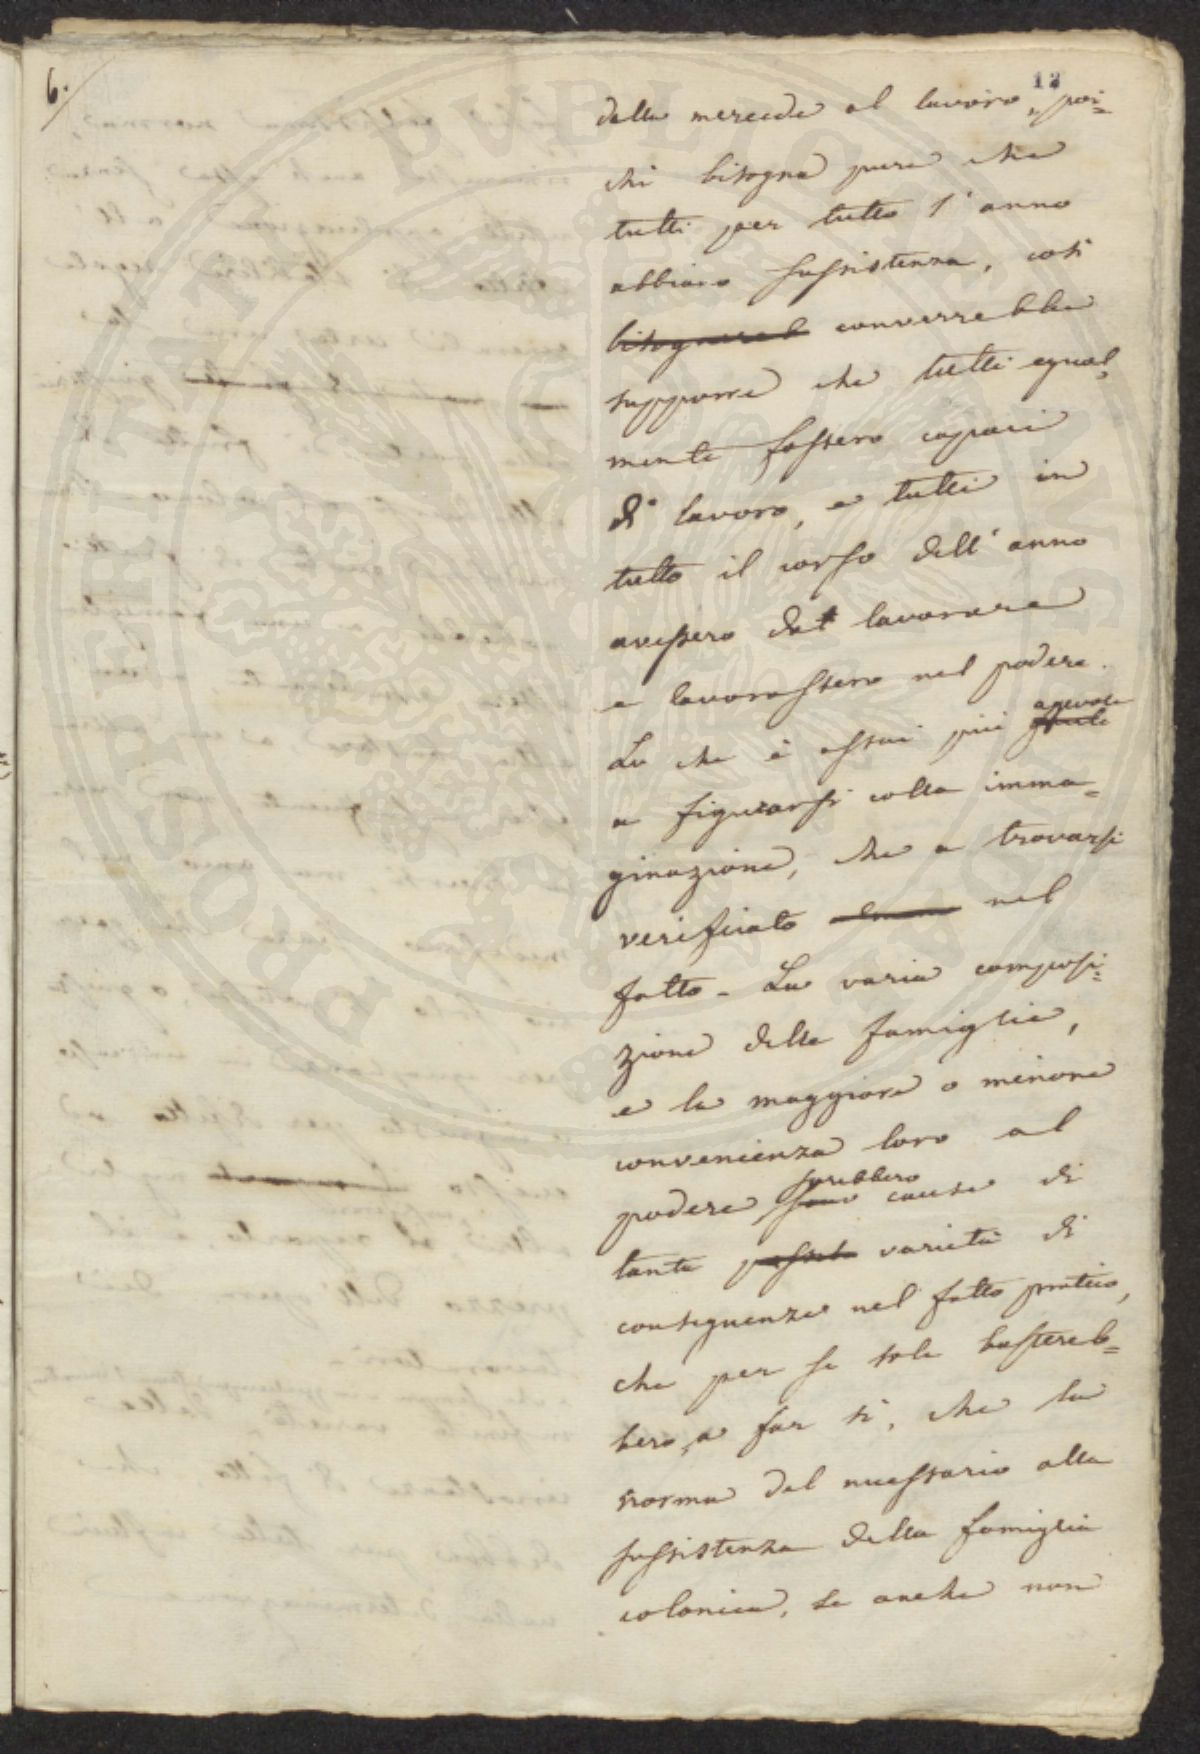 6.
12
della mercede al lavoro, poi=
chè bisogna pure che
tutti per tutto l'anno
abbiano sussistenza, così
bisognereb converrebbe
supporre che tutti egual=
mente fossero capaci
di lavoro, e tutti in
tutto il corso dell'anno
avessero da lavorare
e lavorassero nel podere.
Lo che è assai più facile agevole
a figurarsi colla imma=
ginazione, che a trovarsi
verificato nel
fatto - La varia composi=
zione delle famiglie,
e la maggiore o minore
convenienza loro al
podere sono sarebbero causa di
tante varietà di
conseguenze nel fatto pratico,
che per se sole bastereb=
bero a far sì, che la
norma del necessario alla
sussistenza della famiglia
colonica, se anche non
POSTERITATI PVBLICAE